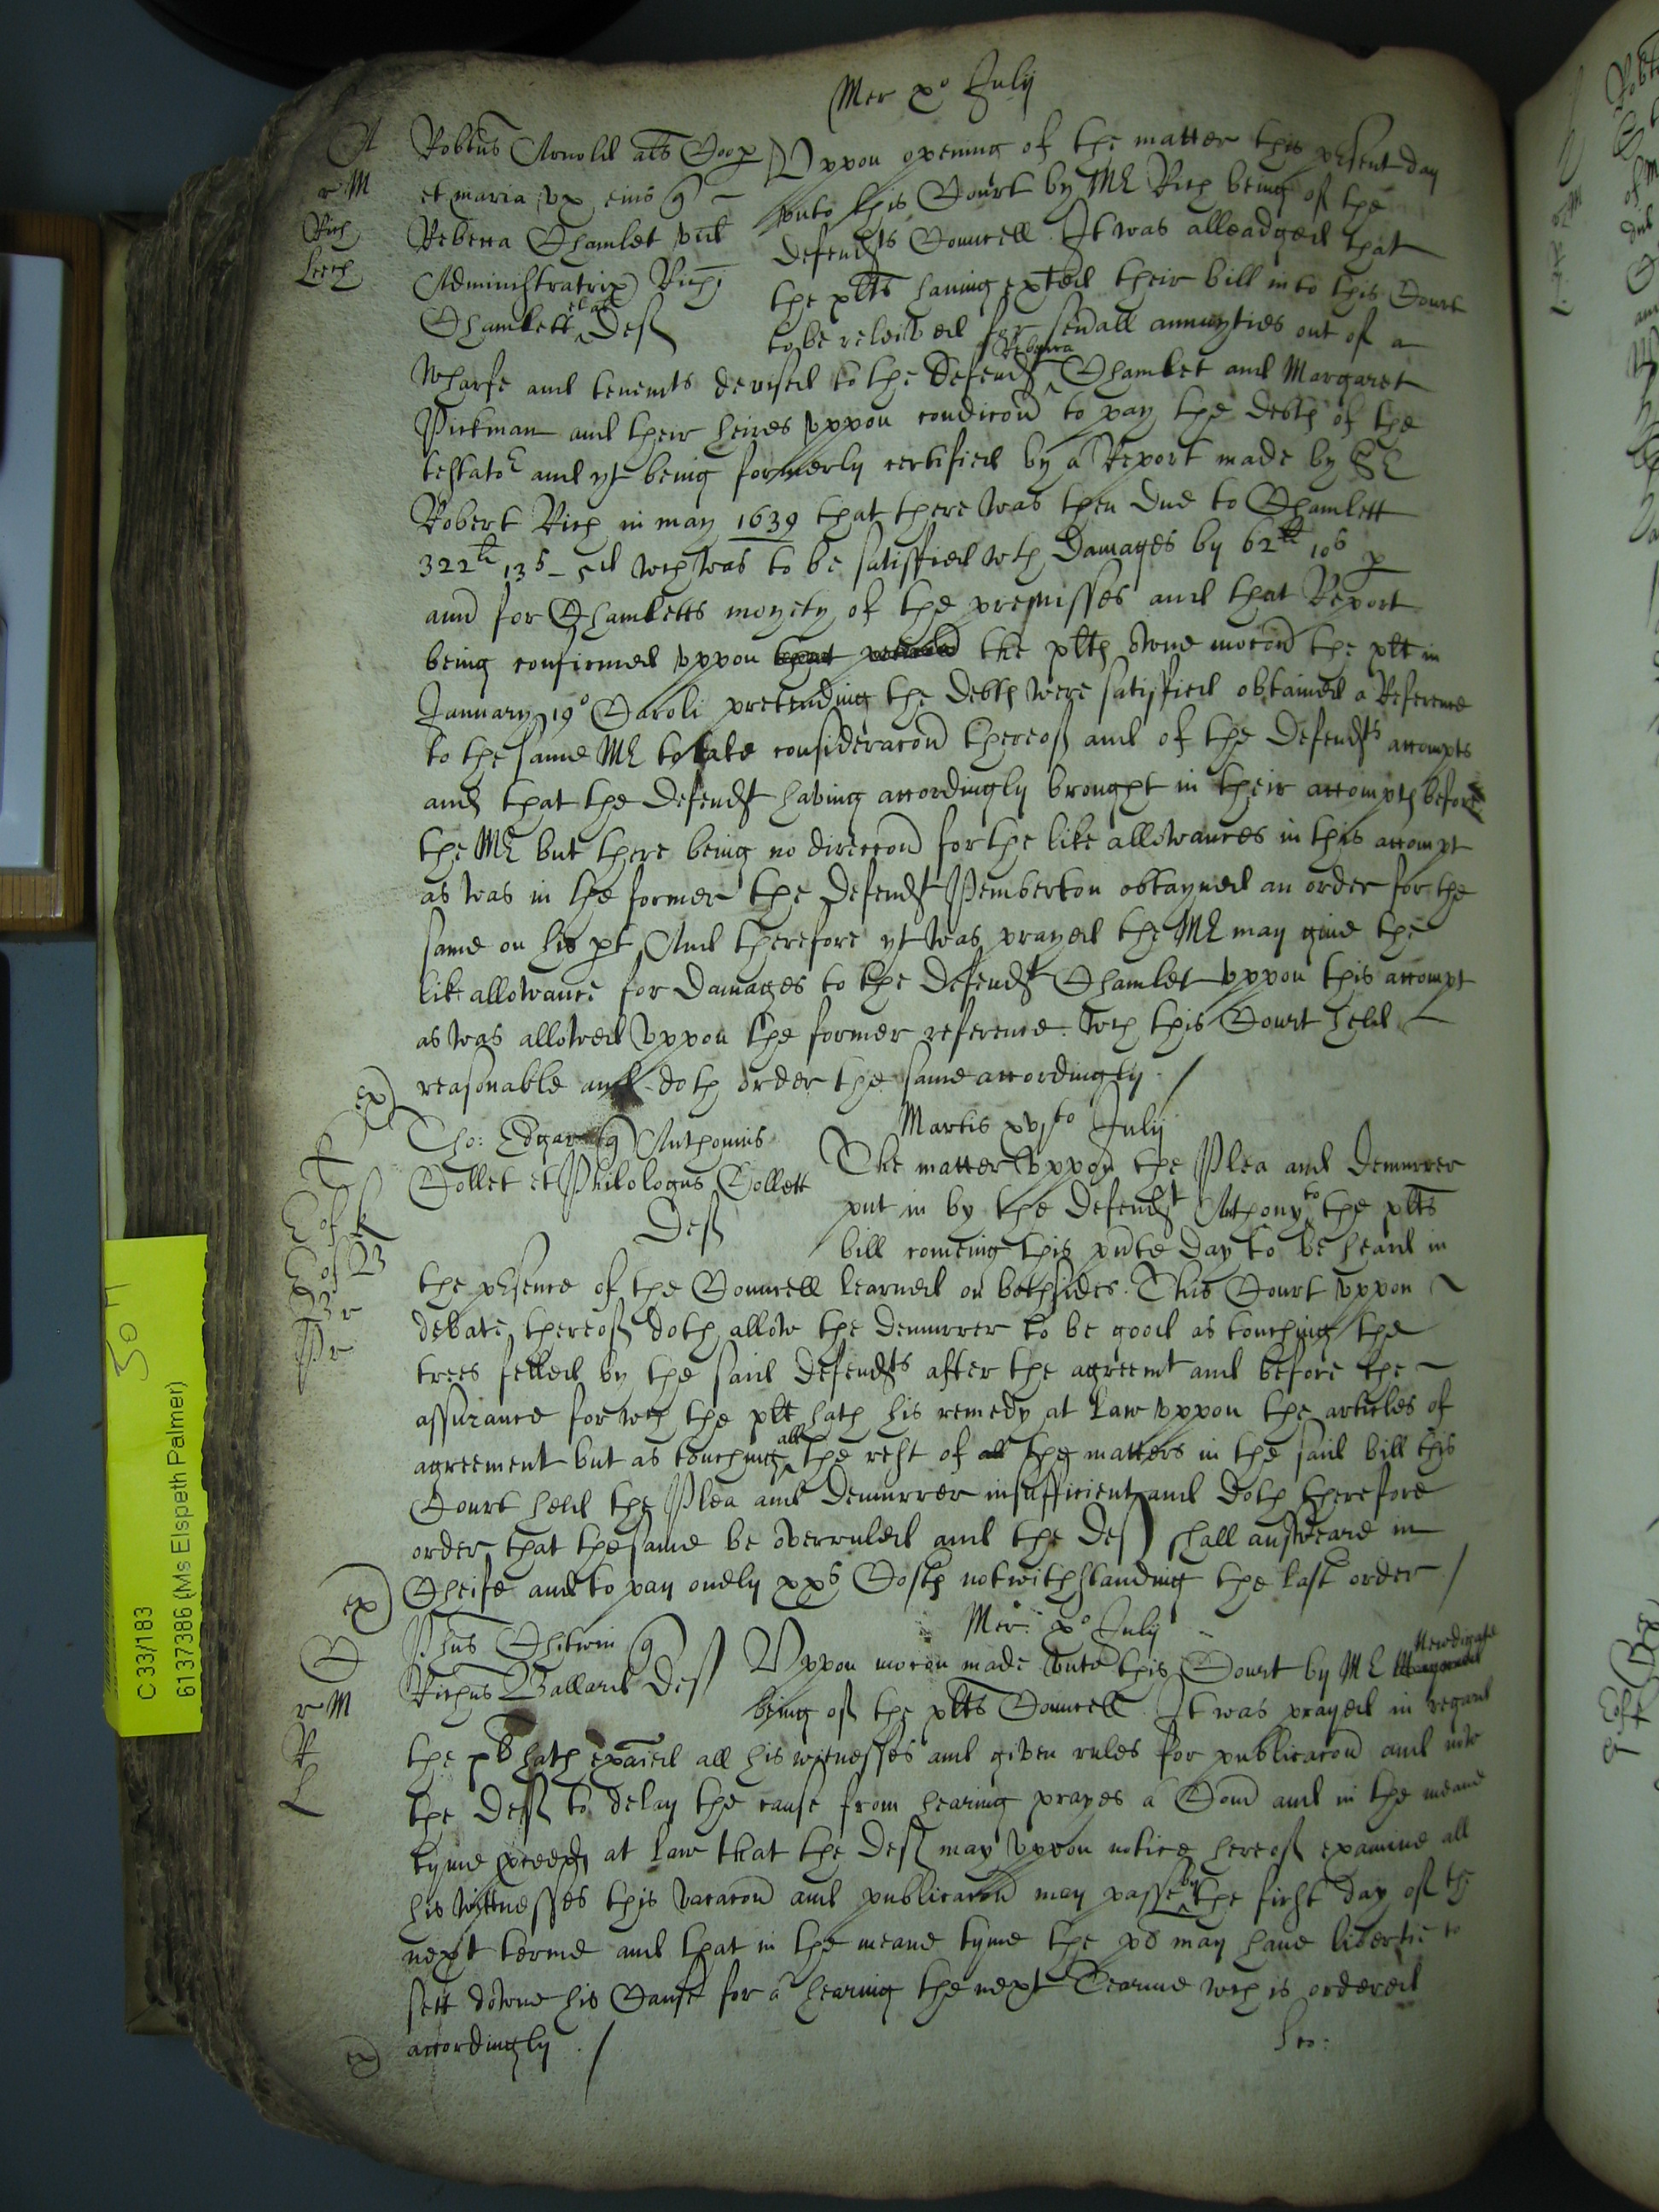 Mer xo July
A
Robtus Arnold als Coop
Uppon opening of the matter this present day
r M
et maria ux eius q
unto this Court by Mr Rich being of the
Rich
Rebecca Chamlet vid
defendts Councell It was alleadged that
Leech
Administratrix Rich
the plts having exhted their bill into this Court
Chamlett et al Def
to be releived for sevall annuyties out of a
wharfe and tenemts devised to the defendt Rebecca Chamlet and Margaret
Pickman and their heires uppon condicon to pay the debts of the
testator and yt being formerly certified by a Report made by Sr
Robert Rich in may 1639 that there was then due to Chamlett
322li 13s - 5d wch was to be satisfied wth Damages by 62li 10s p
ann for Chamletts moyety of the premisses and that Report
being confirmed uppon the plts owne mocon the plt in
January 19o Caroli pretending the debts were satisfied obtained a Reference
to the same Mr to take consideracon thereof and of the defendts accompts
and that the defendt having accordingly brought in their accompts before
the Mr but there being no direccon for the like allowances in this accompt
as was in the former the defendt Pemberton obtayned an order for the
same on his pt And therefore yt was prayed the Mr may give the
like allowance for Damages to the defendt Chamlet uppon this accompt
as was allowed uppon the former reference. wch this Court held
reasonable and doth order the same accordingly /
ex
Martis xvito July
Tho: Edgar q Anthonius
Collet et Philologus Collett
Def
The matter uppon the Plea and demurrer
put in by the defendt Anthony to the plts
bill comeing this pnte day to be heard in
E of K
E of B
Br
Pr
the presence of the Councell learned on bothsides. This Court uppon
debate thereof doth allow the demurrer to be good as touching the
trees felled by the said defendts after the agreemt and before the
assurance for wch the plt hath his remedy at Law uppon the articles of
agreement but as touching all the rest of all the matters in the said bill this
Court held the Plea and Demurrer insufficient and Doth therefore
order that the same be overruled and the Def shall answeare in
Cheife and to pay onely xxs Costs notwithstanding the last order /
ex
Mer: xo July
Phus Chitwin q
Richus Ballard Def
Uppon mocon made unto this Court by Mr Newdigate
r M
R
L
being of the plts Councell. It was prayed in regard
the pl hath exaied all his witnesses and given rules for publicacon and now
the Def to delay the cause from hearing prayes a Com and in the meane
tyme proceeds at law that the Def may uppon notice hereof examine all
his wittnesses this vacacon and publicacon may passe by the first day of the
next terme and that in the meane tyme the pl may have libertie to
sett downe his Cause for a hearing the next Tearme wch is ordered
ex
accordingly. /
C 33/183
6137386 (Ms Elspeth Palmer)